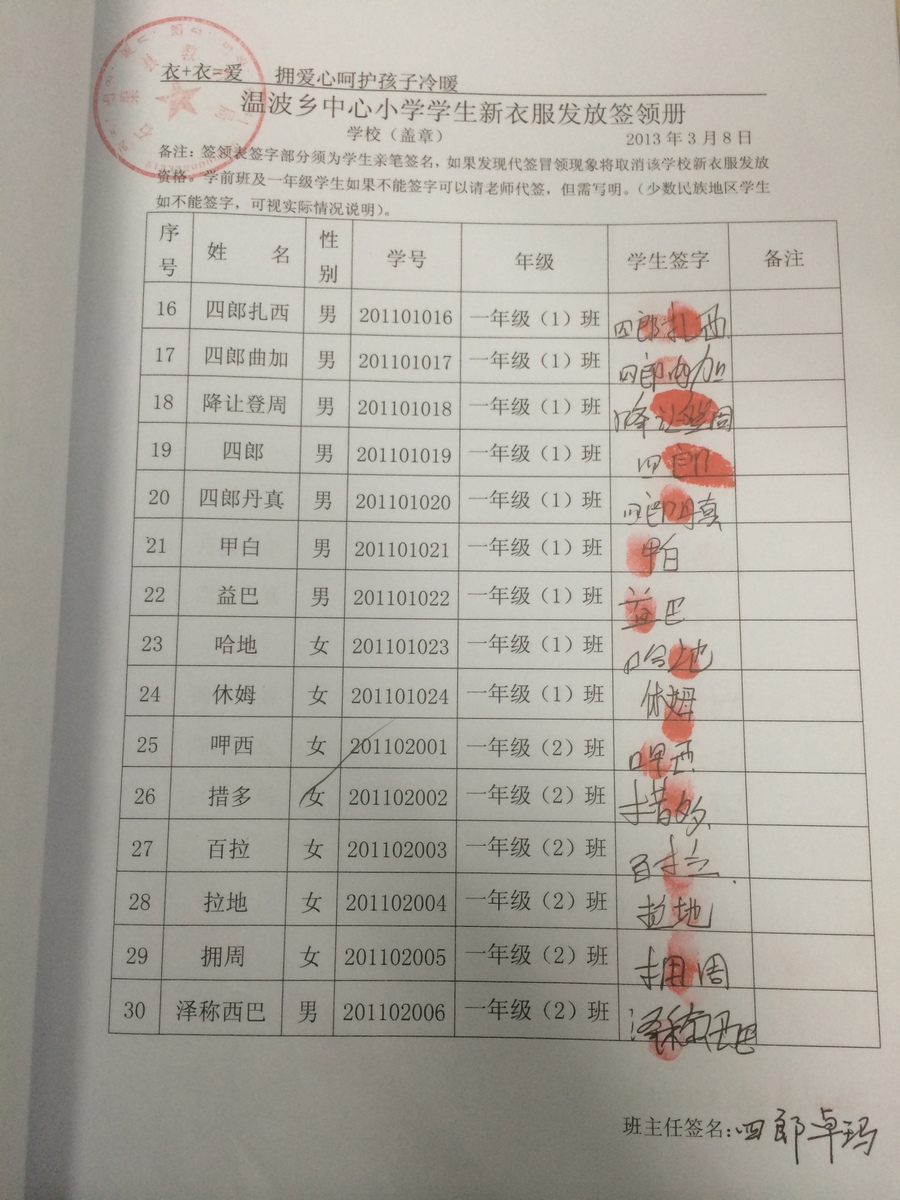 衣+衣=爱 拥爱心呵护孩子冷暖
温波乡中心小学学生新衣服发放签领册
学校（盖章） 2013年3月8日
备注：签领表签字部分须为学生亲笔签名，如果发现代签冒领现象将取消该学校新衣服发放
资格。学前班及一年级学生如果不能签字可以请老师代签，但需写明。（少数民族地区学生
如不能签字，可视实际情况说明）。
序号 姓 名 性别 学号 年级 学生签字 备注
16 四郎扎西 男 201101016 一年级（1）班 四郎扎西
17 四郎曲加 男 201101017 一年级（1）班 四郎曲加
18 降让登周 男 201101018 一年级（1）班 降让登周
19 四郎 男 201101019 一年级（1）班 四郎
20 四郎丹真 男 201101020 一年级（1）班 四郎丹真
21 甲白 男 201101021 一年级（1）班 甲白
22 益巴 男 201101022 一年级（1）班 益巴
23 哈地 女 201101023 一年级（1）班 哈地
24 休姆 女 201101024 一年级（1）班 休姆
25 呷西 女 201102001 一年级（2）班 呷西
26 措多 女 201102002 一年级（2）班 措多
27 百拉 女 201102003 一年级（2）班 百拉
28 拉地 女 201102004 一年级（2）班 拉地
29 拥周 女 201102005 一年级（2）班 拥周
30 泽称西巴 男 201102006 一年级（2）班 泽称西巴
班主任签名：四郎卓玛